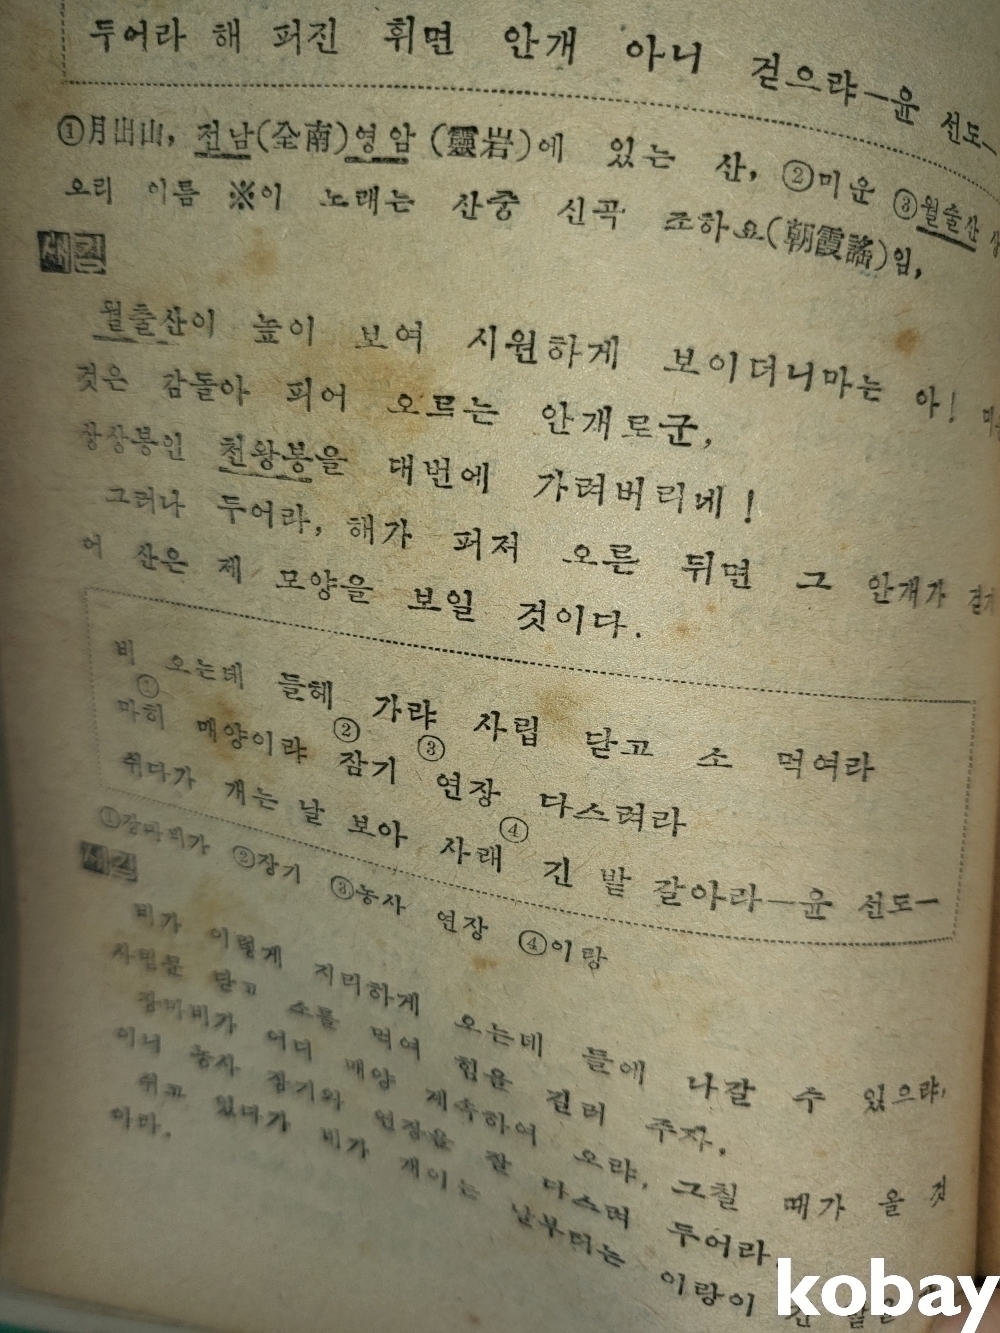 두어라 해 퍼진 휘면 안개 아니 걷으랴—윤 선도—
①月出山, 전남(全南)영암 (靈岩)에 있는 산, ②미운 ③월출산
오리 이름 ※이 노래는 산중 신곡 조하요(朝霞謠)임,
새김
월출산이 높이 보여 시원하게 보이더니마는 아!
것은 감돌아 피어 오르는 안개로군,
상상봉인 천왕봉을 대번에 가려버리네!
그러나 두어라, 해가 퍼저 오른 뒤면 그 안개가
어 산은 제 모양을 보일 것이다.
비 오는데 들헤 가랴 사립 닫고 소 먹여라
①마히 매양이랴 ②잠기 ③연장 다스려라
쉬다가 개는 날 보아 사래 ④긴 밭 갈아라—윤 선도—
①장마비가 ②장기 ③농사 연장 ④이랑
새김
비가 이렇게 지리하게 오는데 들에 나갈 수 있으랴,
사립문 닫고 소를 먹여 힘을 길러 주자.
장마비가 어디 매양 계속하여 오랴, 그칠 때가 올 것
이니 농사 잠기와 연장을 잘 다스려 두어라.
쉬고 있다가 비가 개이는 날부터는 이랑이 긴
아마.
kobay